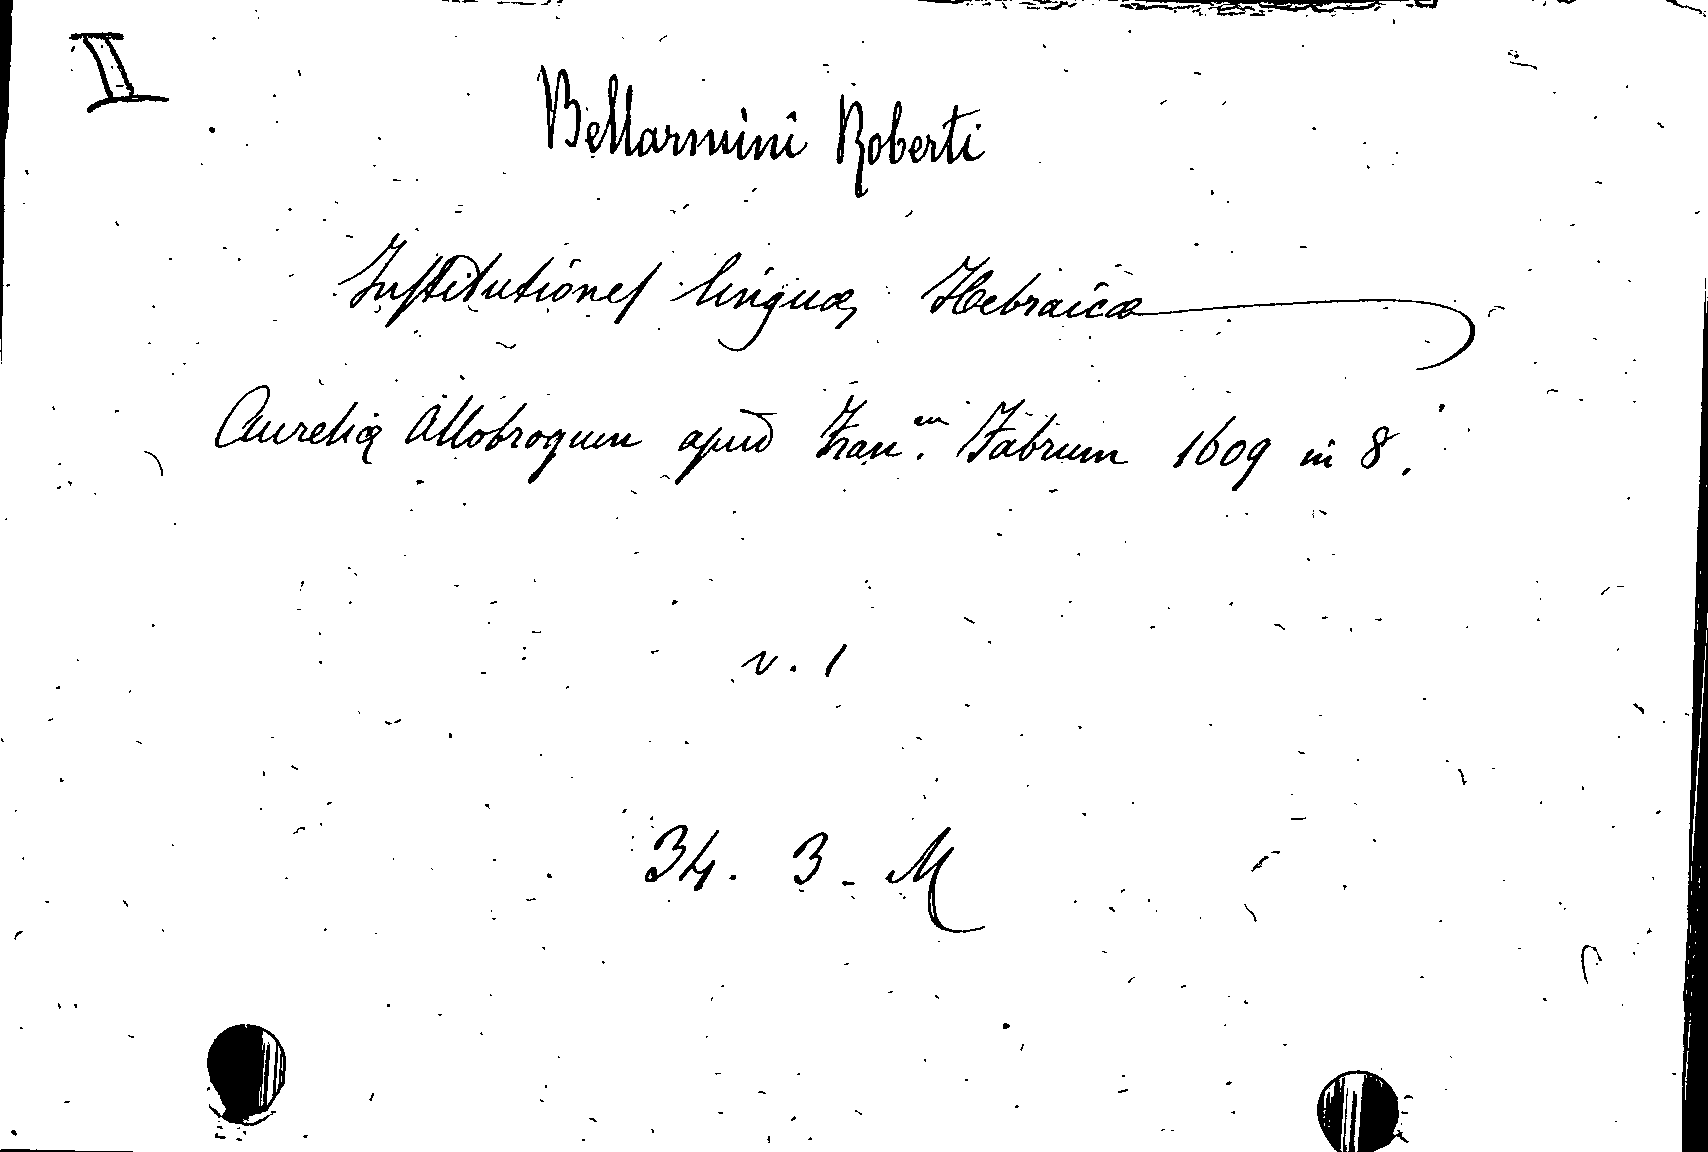 II
Bellarmini Roberti
Institutiones linguæ Hebraicæ
Aureliæ Allobrogum apud Fran.um Fabrum 1609 in 8.
v. 1
34. 3 - M